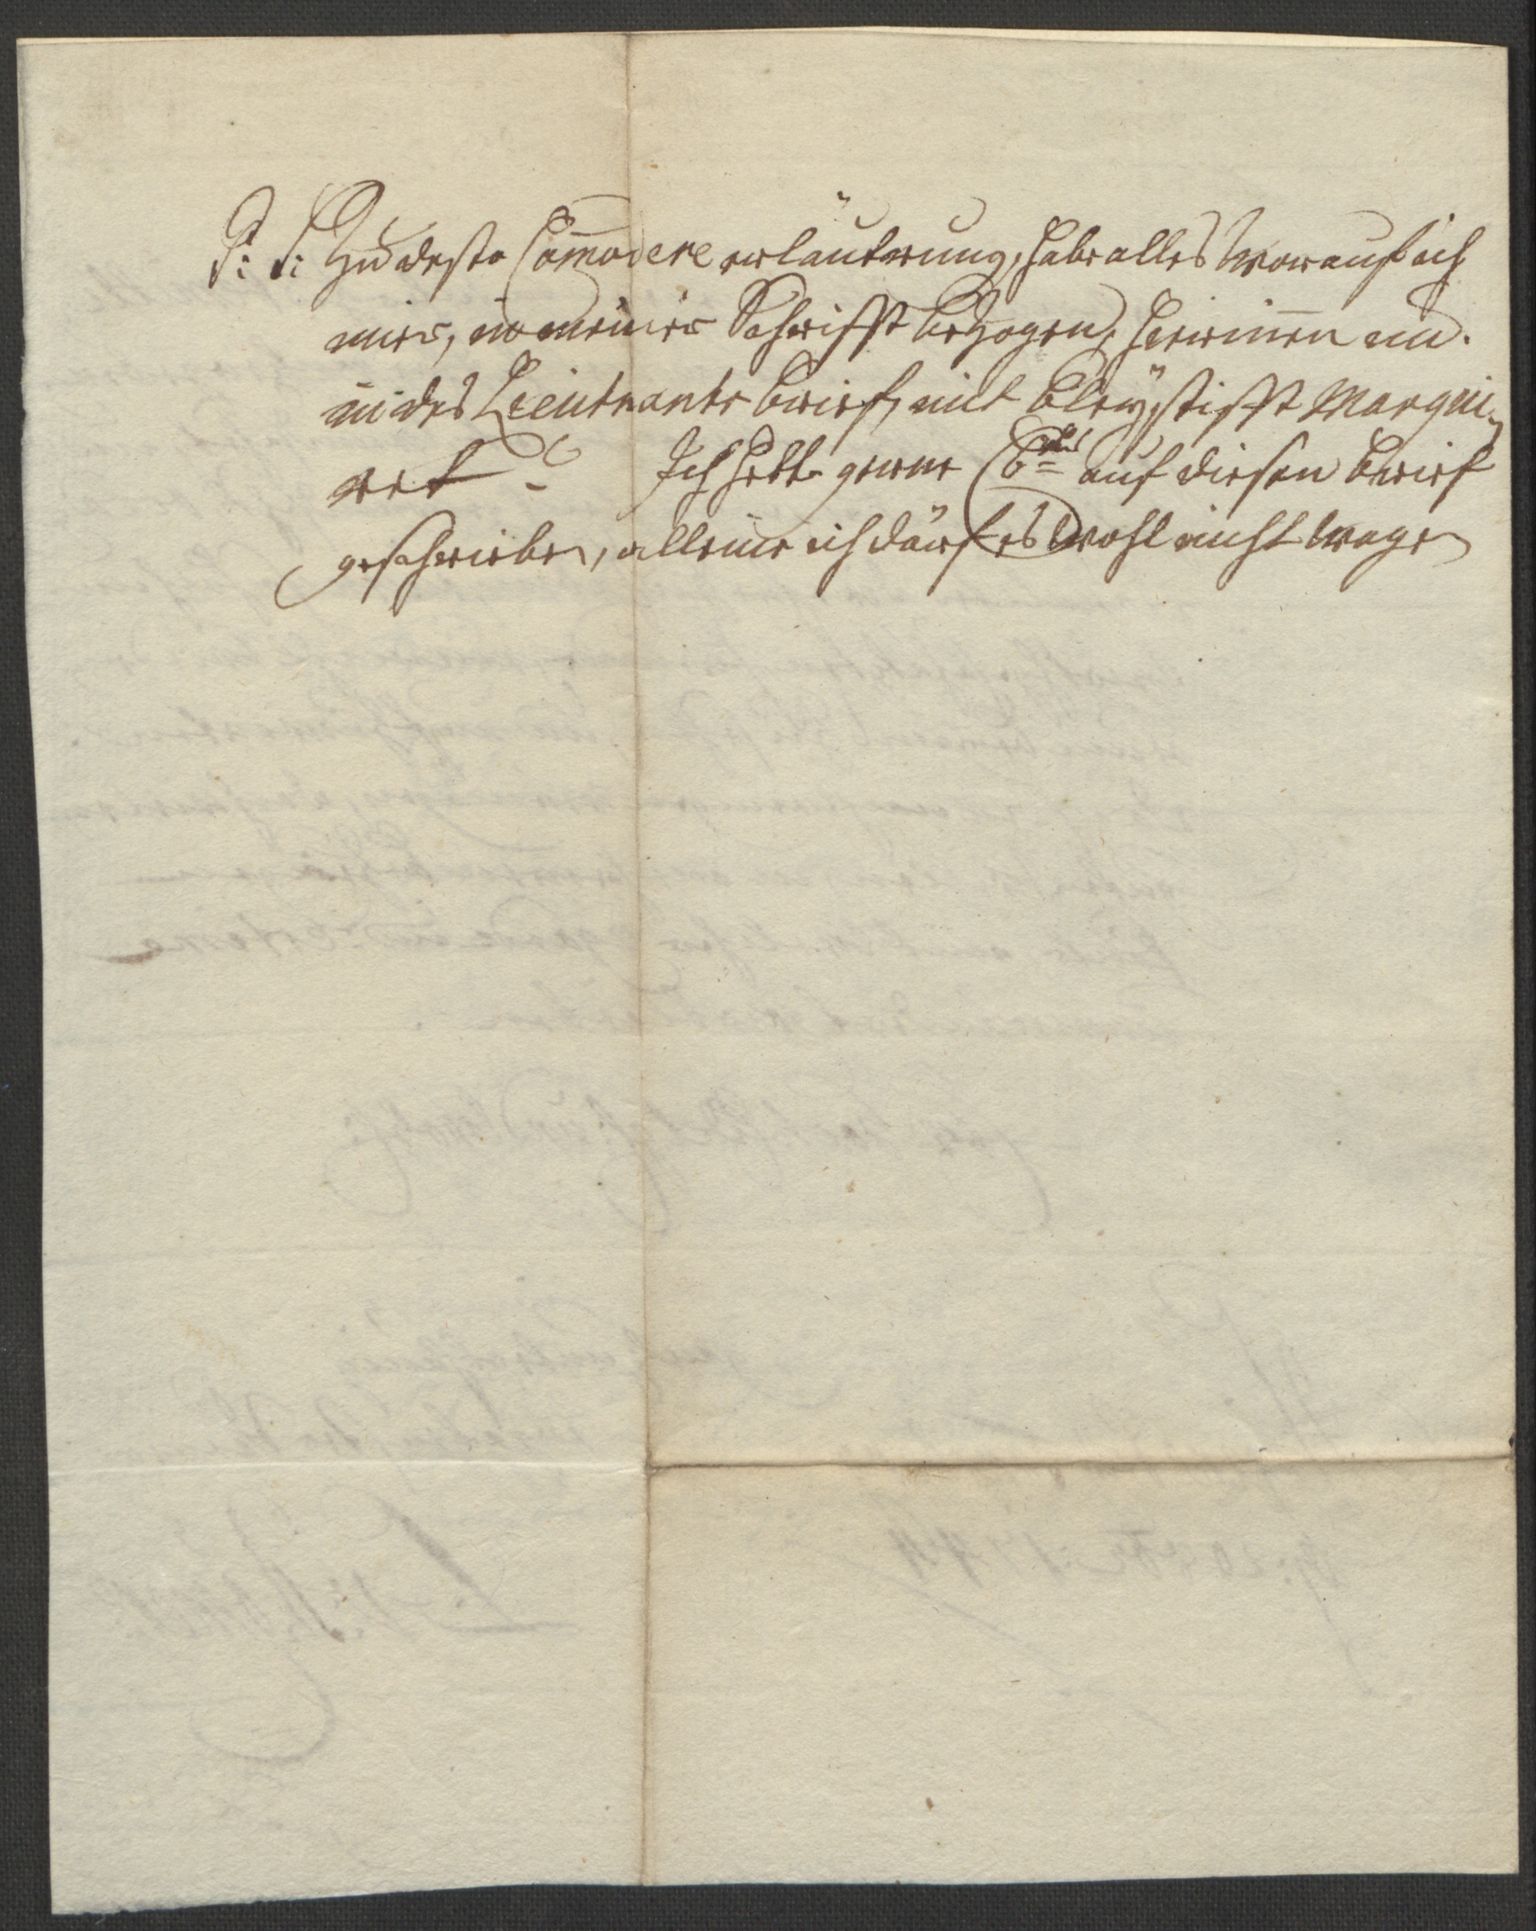 P: S: Zu desto Com̄odere erläuterung, habe alles worauf ich
mir, in meiner Schrifft bezogen, hierinnen und.
in des Lieutnants brief, mit bleÿstifft Marqui-
ret. Ich hette gerne auf diesen brief
geschrieben, alleine ich därf es wohl nicht wagen